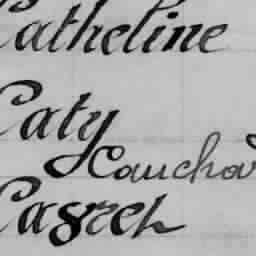 Catheline
Caty
Cauchoi
Casret